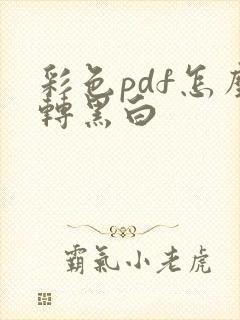 彩色pdf怎麼
轉黑白
霸氣小老虎